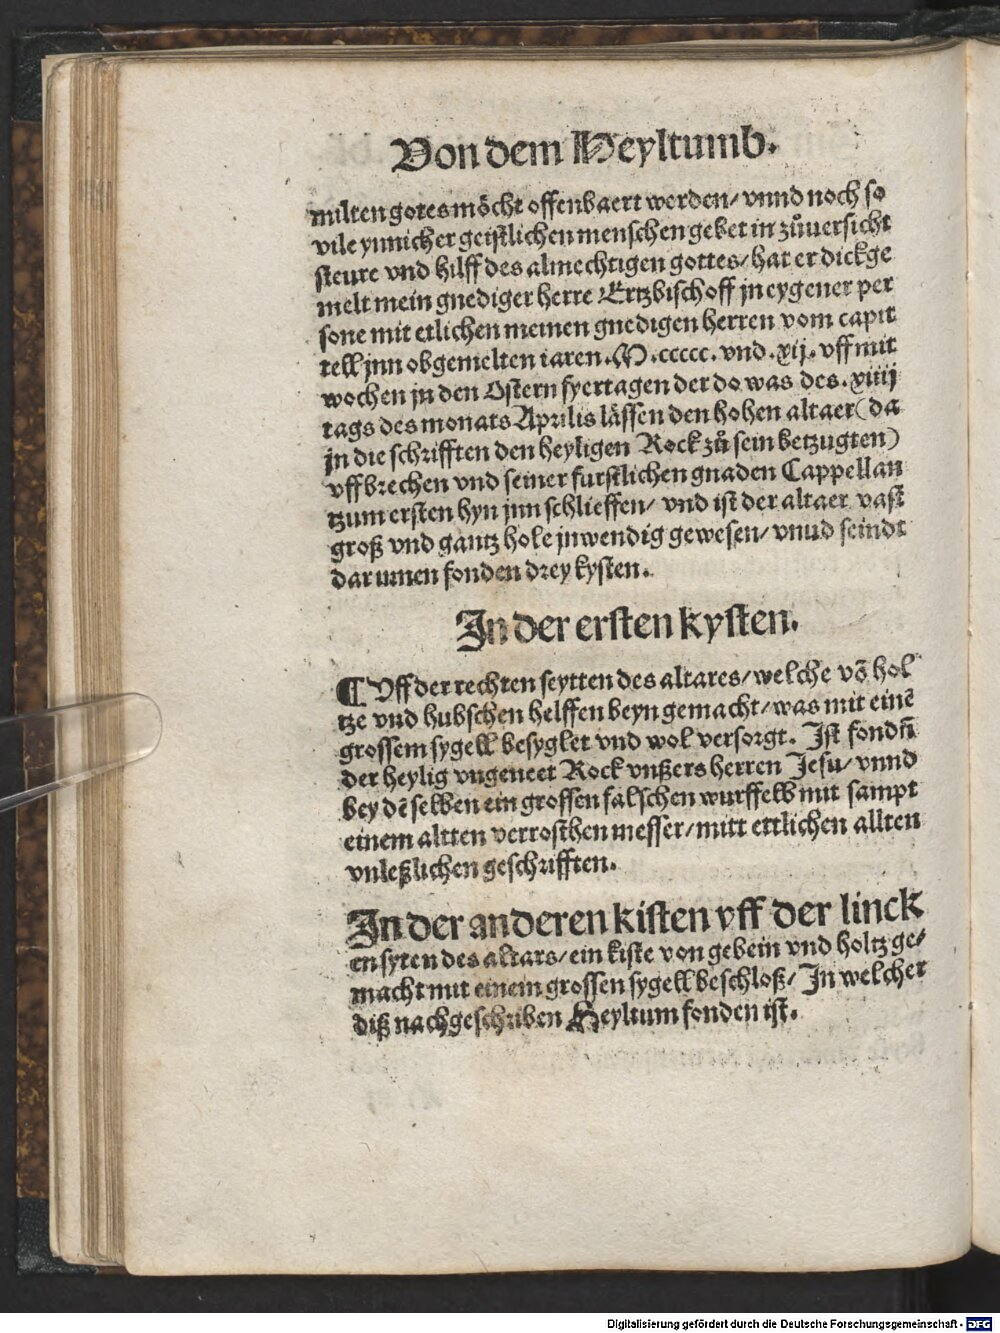 Von dem Heyltumb.
milten gotes möcht offenbaert werden/ vnnd noch so
vile ynnicher geistlichen menschen gebet in zůuersicht
steure vnd hilff des almechtigen gottes/ hat er dickge
melt mein gnediger herre Ertzbischoff jn eygener per
sone mit etlichen meinen gnedigen herren vom capit
tell jnn obgemelten iaren .M.ccccc. vnd .xij. vff mit
wochen jn den Ostern fyertagen der do was des .xiiij
tags des monats Aprilis lässen den hohen altaer (da
jn die schrifften den heyligen Rock zů sein betzugten)
vffbrechen vnd seiner furstlichen gnaden Cappellan
tzum ersten hyn jnn schlieffen/ vnd ist der altaer vast
groß vnd gantz hole jnwendig gewesen/ vnud seindt
dar innen fonden drey kysten.
In der ersten kysten.
¶ Vff der rechten seytten des altares/ welche võ hol
tze vnd hubschen helffen beyn gemacht/ was mit einẽ
grossem sygell besyglet vnd wol versorgt. Ist fondñ
der heylig vngeneet Rock vnßers herren Jesu/ vnnd
bey dẽ selben ein grossen falschen wurffell mit sampt
einem altten verrosthen messer/ mitt ettlichen allten
vnleßlichen geschrifften.
In der anderen kisten vff der linck
en syten des altars/ ein kiste von gebein vnd holtz ge/
macht mit einem grossen sygell beschloß/ In welcher
diß nachgeschriben Heyltum fonden ist.
Digitalisierung gefördert durch die Deutsche Forschungsgemeinschaft - DFG